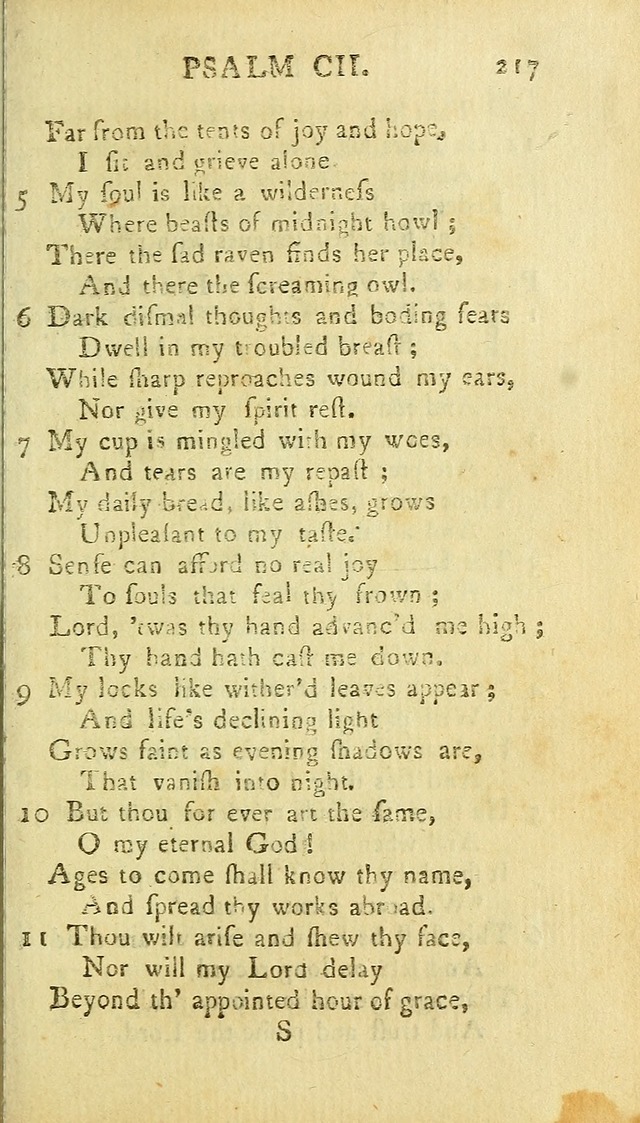 PSALM CII. 217
Far from the tents of joy and hope,
I ſit and grieve alone.
5 My ſoul is like a wilderneſs
Where beaſts of midnight howl ;
There the ſad raven finds her place,
And there the ſcreaming owl.
6 Dark diſmal thoughts and boding fears
Dwell in my troubled breaſt ;
While ſharp reproaches wound my ears,
Nor give my ſpirit reſt.
7 My cup is mingled with my woes,
And tears are my repaſt ;
My daily bread, like aſhes, grows
Unpleaſant to my taſte.
8 Senſe can afford no real joy
To ſouls that feal thy frown ;
Lord, 'twas thy hand advanc'd me high ;
Thy hand hath caſt me down.
9 My locks like wither'd leaves appear ;
And life's declining light
Grows faint as evening ſhadows are,
That vaniſh into night.
10 But thou for ever art the ſame,
O my eternal God !
Ages to come ſhall know thy name,
And ſpread thy works abroad.
11 Thou wilt ariſe and ſhew thy face,
Nor will my Lord delay
Beyond th' appointed hour of grace,
S